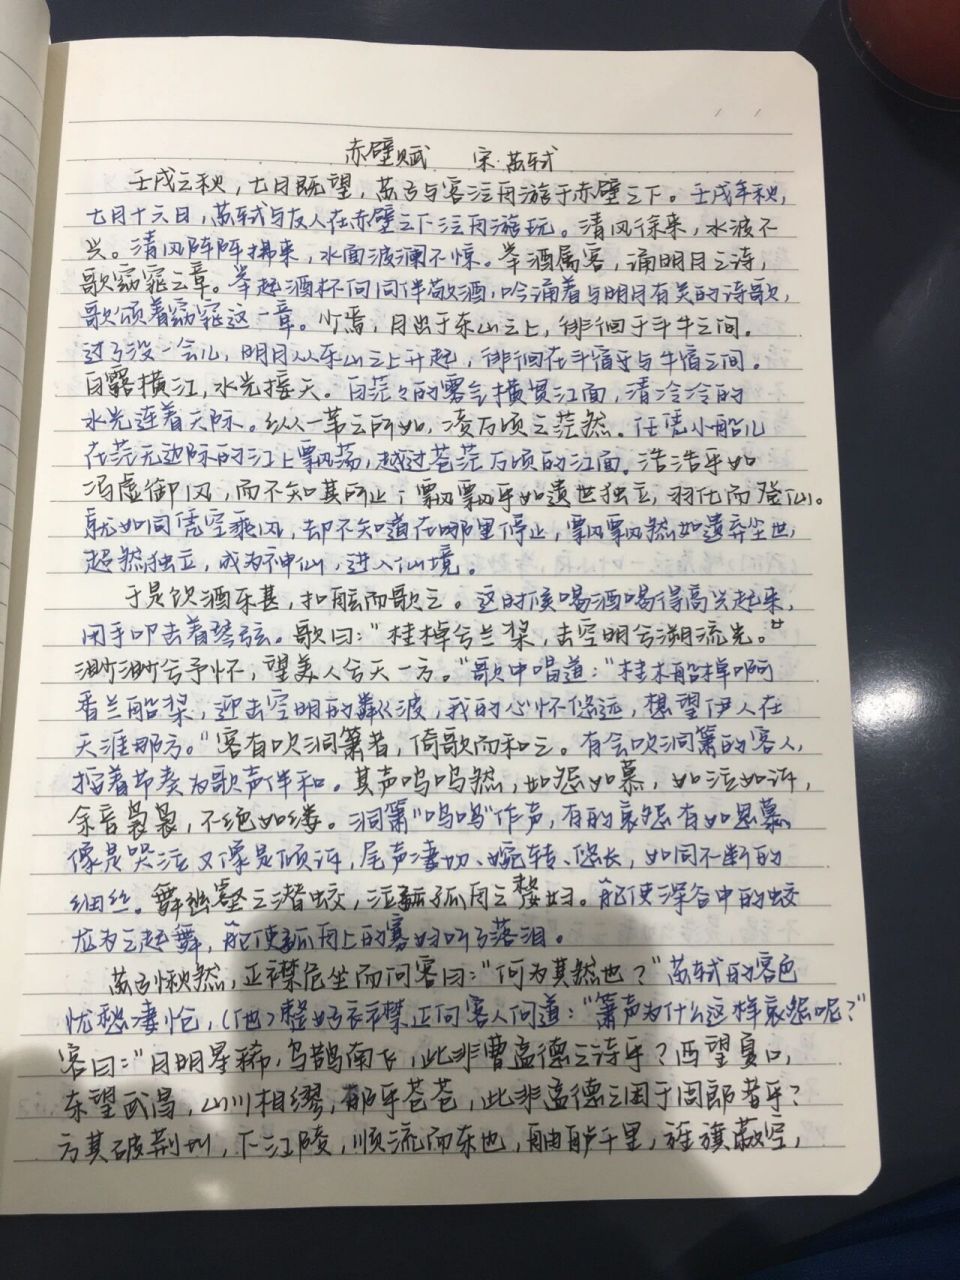 赤壁赋 宋·苏轼
壬戌之秋，七月既望，苏子与客泛舟游于赤壁之下。壬戌年秋，
七月十六日，苏轼与友人在赤壁之下泛舟游玩。清风徐来，水波不
兴。清风阵阵拂来，水面波澜不惊。举酒属客，诵明月之诗，
歌窈窕之章。举起酒杯向同伴敬酒，吟诵着与明月有关的诗歌，
歌颂着窈窕这一章。少焉，月出于东山之上，徘徊于斗牛之间。
过了没一会儿，明月从东山之上升起，徘徊在斗宿与牛宿之间。
白露横江，水光接天。白茫々的雾气横贯江面，清冷冷的
水光连着天际。纵一苇之所如，凌万顷之茫然。任凭小船儿
在茫无边际的江上飘荡，越过苍茫万顷的江面。浩浩乎如
冯虚御风，而不知其所止；飘飘乎如遗世独立，羽化而登仙。
就如同凭空乘风，却不知道在哪里停止，飘飘然如遗弃尘世，
超然独立，成为神仙，进入仙境。
于是饮酒乐甚，扣舷而歌之。这时候喝酒喝得高兴起来，
用手叩击着琴弦。歌曰：“桂棹兮兰桨，击空明兮溯流光。”
渺渺兮予怀，望美人兮天一方。”歌中唱道：“桂木船棹啊
香兰船桨，迎击空明的粼波，我的心怀悠远，想望伊人在
天涯那方。”客有吹洞箫者，倚歌而和之。有会吹洞箫的客人，
按着节奏为歌声伴和。其声呜呜然，如怨如慕，如泣如诉，
余音袅袅，不绝如缕。洞箫“呜呜”作声，有的哀怨有如思慕，
像是哭泣又像是倾诉，尾声凄切、婉转、悠长，如同不断的
细丝。舞幽壑之潜蛟，泣孤舟之嫠妇。能使深谷中的蛟
龙为之起舞，能使孤舟上的寡妇听了落泪。
苏子愀然，正襟危坐而问客曰：“何为其然也？”苏轼的容色
忧愁凄怆，（他）整好衣襟正向客人问道：“箫声为什么这样哀怨呢？”
客曰：“月明星稀，乌鹊南飞，此非曹孟德之诗乎？西望夏口，
东望武昌，山川相缪，郁乎苍苍，此非孟德之困于周郎者乎？
方其破荆州，下江陵，顺流而东也，舳舻千里，旌旗蔽空，